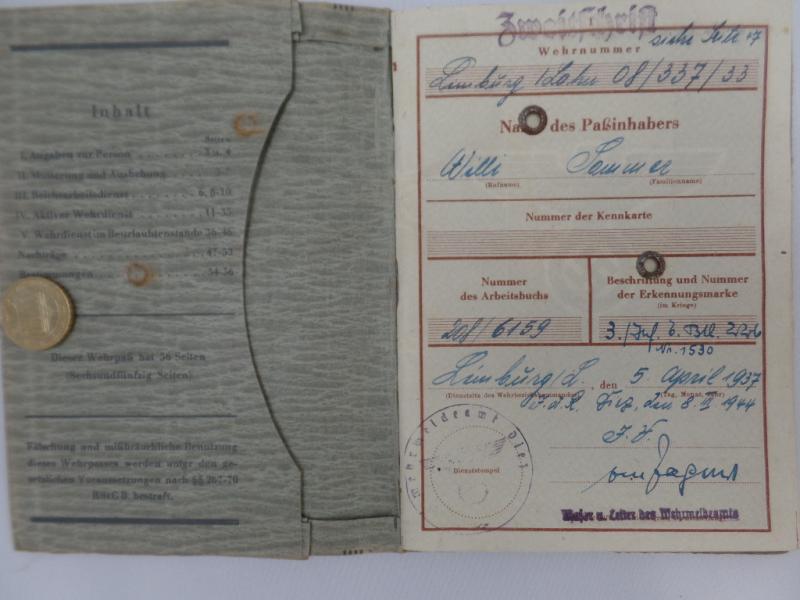 Inhalt
Seiten
I. Angaben zur Person 3 u. 4
II. Musterung und Aushebung
III. Reichsarbeitsdienst 6, 8-10
IV. Aktiver Wehrdienst 11-35
V. Wehrdienst im Beurlaubtenstande 36-46
Nachträge 47-53
54-56
Dieser Wehrpaß hat 56 Seiten
(Sechsundfünfzig Seiten)
Fälschung und mißbräuchliche Benutzung
dieses Wehrpasses werden unter den ge-
setzlichen Voraussetzungen nach §§ 267-70
RStGB. bestraft.
Zweitschrift
Wehrnummer siehe Seite 17
Limburg/Lahn 08/337/33
des Paßinhabers
Willi Sommer
(Rufname) (Familienname)
Nummer der Kennkarte
Nummer
des Arbeitsbuchs
208/6159
Beschriftung und Nummer
der Erkennungsmarke
(im Kriege)
3./Inf.
Nr. 1530
Limburg/L., den 5 April 1937
(Tag, Monat, Jahr)
den 8. 1944
Dienststempel
Wehrmeldeamt Diez
Major u. Leiter des Wehrmeldeamts